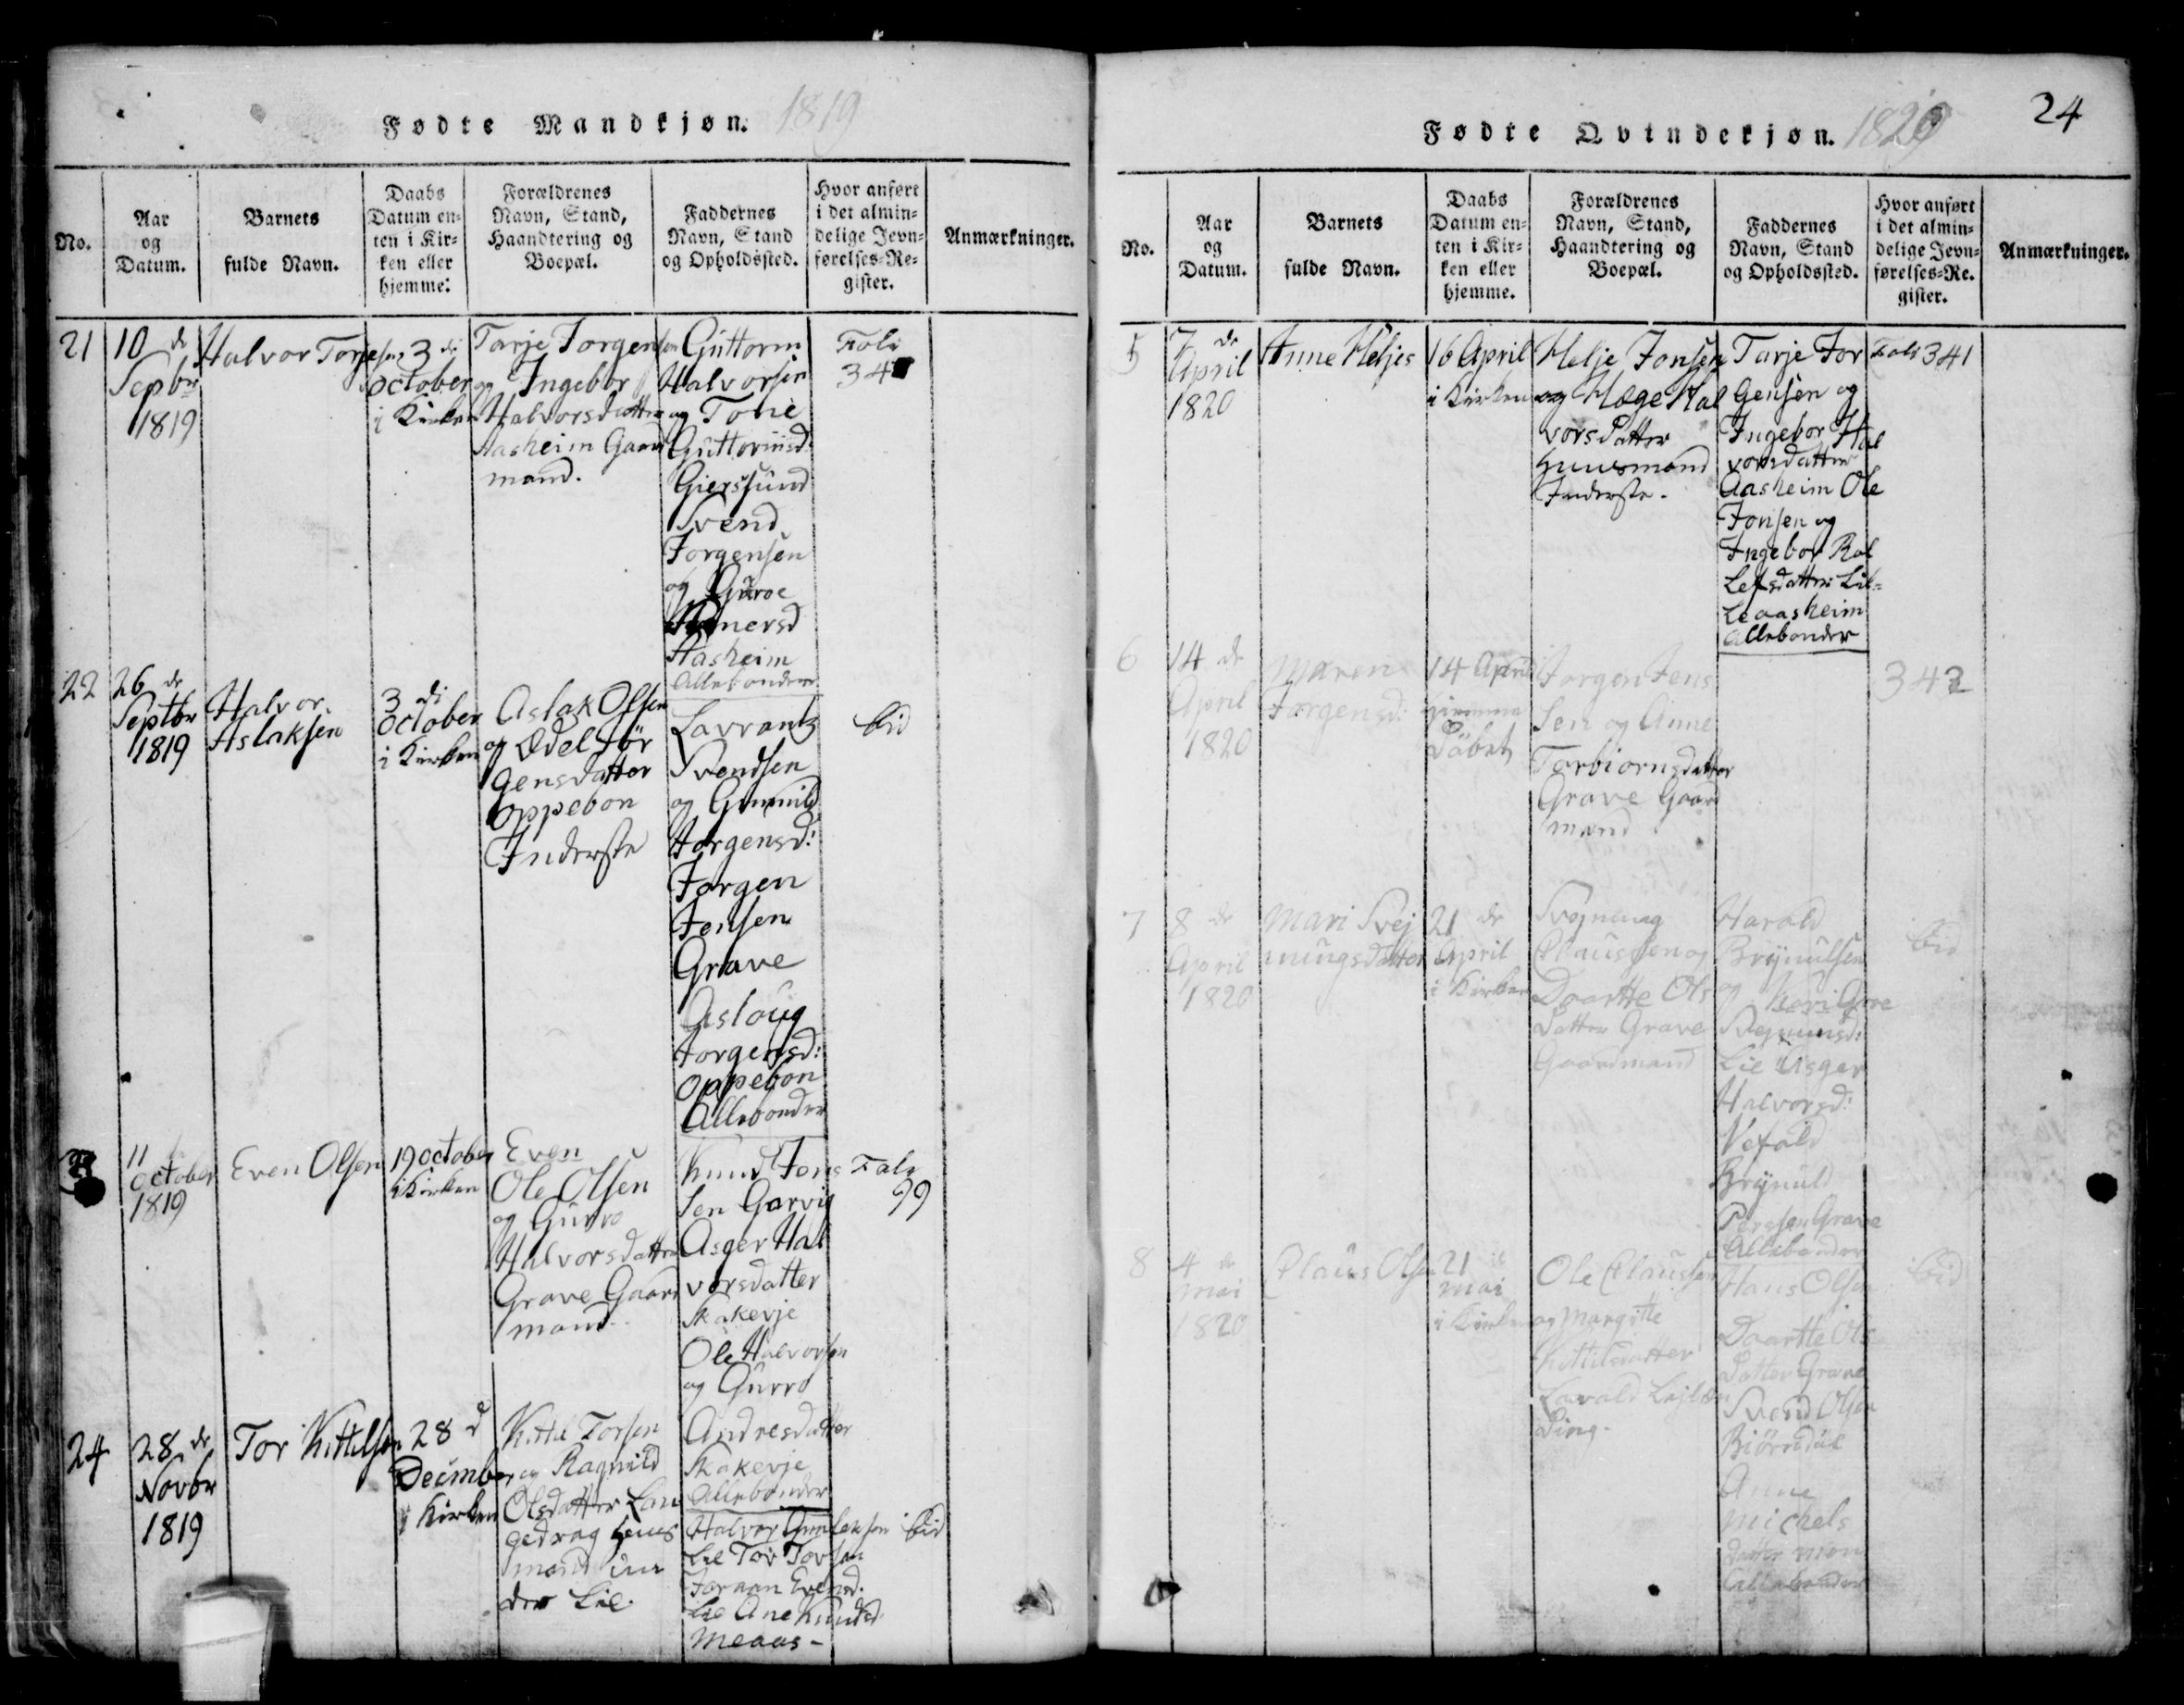 Fødte Mandkjøn. 1819
No.
Aar
og
Datum.
Barnets
fulde Navn.
Daabs
Datum en-
ten i Kir-
ken eller
hjemme.
Forældrenes
Navn, Stand,
Haandtering og
Boepæl.
Faddernes
Navn, Stand
og Opholdssted.
Hvor anført
i det almin-
delige Jevn-
førelses-Re-
gister.
Anmærkninger.
21
10 de
Sepbr
1819
Halvor Torjesen
3 di
October
i Kirken
Tarje Jorgensen
og Ingebor
Halvorsdatter
Aasheim Gaard
mand.
Guttorm
Halvorsen
og Tone
Guttormsd:
Gierssund
Svend
Jorgensen
og Guroe
Aasheim
Allebonder
Folio
34
22
26 de
Septbr
1819
Halvor
Aslaksen
3 di
October
i Kirken
Aslak Olsen
og Edel Jör
gensdatter
Oppebon
Inderste
Lavrantz
Svendsen
og Gunnild
Jorgensd:
Jorgen
Jensen
Grave
Asloug
Jorgensd:
Oppebon
Allebonder
bid
11
October
1819
Even Olsen
19 October
i Kirken
Even
Ole Olsen
og Gurro
Halvorsdatter
Grave Gaard
mand.
Knud Jons
sen Garvig
Asger Hal
vorsdatter
Skakevje
Ole Halvorsen
og Gurro
Andresdatter
Skakevje
Allebonder
Folio
99
24
28 de
Novbr
1819
Tor Kittelsen
28 d
December
i Kirken
Kittel Torsen
og Ragnild
Olsdatter Lan
gedrag Huus
mand un
der Lie.
Halvor Gunleksen
Lie Tor Torsen
Joraan Evensd.
Lie Ane Knudsd
Meaas -
ibid
24
Fødte Qvindekjøn. 1820
No.
Aar
og
Datum.
Barnets
fulde Navn.
Daabs
Datum en-
ten i Kir-
ken eller
hjemme.
Forældrenes
Navn, Stand,
Haandtering og
Boepæl.
Faddernes
Navn, Stand
og Opholdssted.
Hvor anført
i det almin-
delige Jevn-
førelses-Re-
gister.
Anmærkninger.
5
7 de
April
1820
Anne Heljes
16 April
i Kirken
Helje Jonsen
og Hæge Hal
vorsdatter
Huusmand
Inderste.
Tarje Jor
gensen og
Ingebor Hal
vorsdatter
Aasheim Ole
Jonsen og
Ingebor Rol
lefsdatter Lil-
leaasheim
Allebonder
Folio 341
6
14 de
April
1820
Maren
Jorgensd:
14 April
Hiemme
Döbet
Jorgen Jens
sen og Anne
Torbiornsdatter
Grave Gaard
mand
342
7
8 de
April
1820
Mari Svej
nungsdatter
21 de
April
i Kirken
Svejnung
Clausen og
Daartte Ols
datter Grave
Gaardmand
Harald
Brynulsen
og Kari
Lie Asger
Halvorsd:
Vefald
Brynuld
Grave
Allebonder
ibid
8
4 de
Mai
1820
Claus Olsen
21
Mai
i Kirken
Ole Clausen
og Margitte
Kittilsdatter
ding.
Hans Olsen
Daartte Ols
datter Grave
Svend Olsen
Biörndal
Anne
Michels
datter Moen
Allebonder
ibid